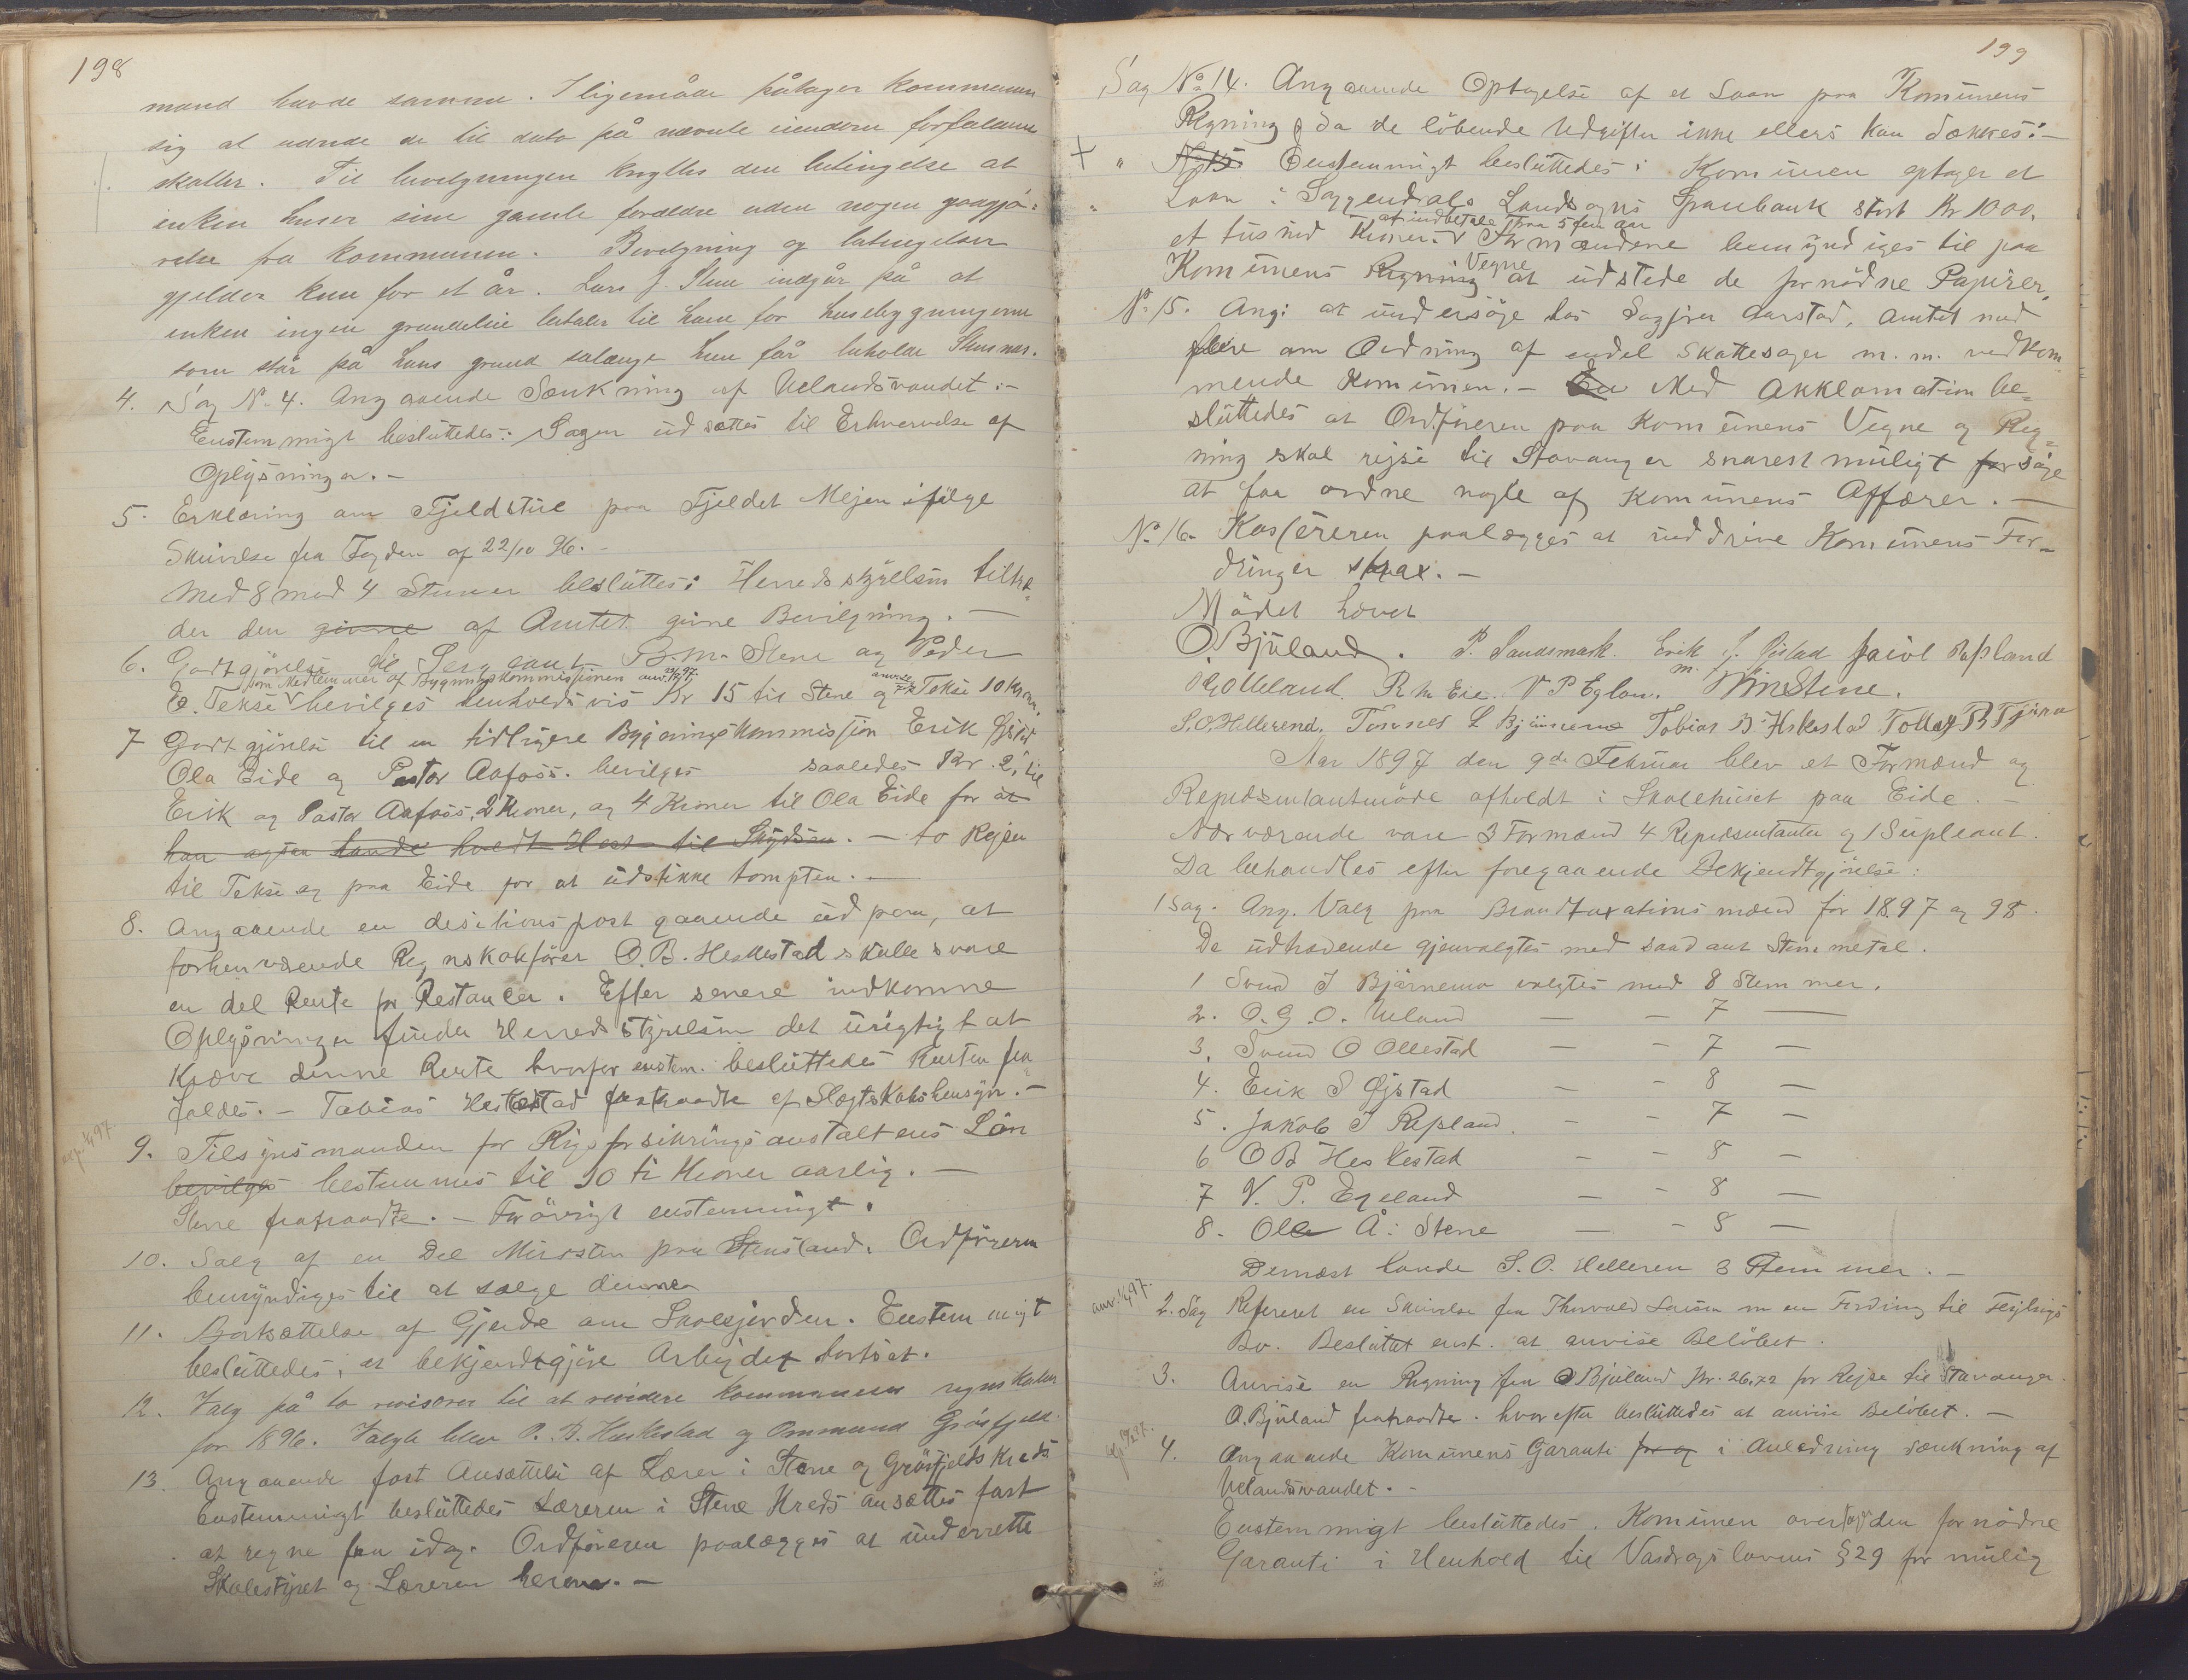 198
mand havde samme. I ligemåde påtager kommunen
sig at udrede de til dato på nævnte eiendom forfaldne
skatter. Til bevilgningen knyttes den betingelse at
enken huser sine gamle forældre uden nogen godtgjø-
relse fra kommunen. Bevilgning og betingelser
gjelder kun for et år. Lars J. Stene indgår på at
enken ingen grundleie betaler til ham for husebygningerne
som står på hans grund salænge hun får beholde
4. Sag No 4. Angaaende Sænkning af Uelandsvandet.-
Enstemmigt besluttedes: Sagen udsættes til Erhvervelse af
Oplysninger.-
5. Erklæring om Fjeldstue paa Fjeldet Mejen ifølge
Skrivelse fra Fogden af 22/10 96.-
Med 8 mod 4 Stemmer besluttes: Herredsstyrelsen tiltræ-
der den givne af Amtet givne Bevilgning.-
6. Godtgjørelse til Sergeant B. M. Stene og Peder
som Medlemmer af Bygningskommissionen
E. Tekse bevilges henholdsvis Kr 15 til Stene og Tekse 10 Kroner.
7 Godtgjørelse til en tidligere Bygningskommission Erik Øjstad
Ola Eide og Pastor Aafoss. bevilges saaledes Kr. 2, til
Erik og Pastor Aafoss, 2 Kroner, og 4 Kroner til Ola Eide for at
han ogsaa havde holdt Hest til Skydsen. - to Rejser
til Tekse og paa Eide for at udstikke tompten.-
8. Angaaende en desisionspost gaaende ud paa, at
forhenværende Regnskabsfører O. B. Heskestad skulle svare
en del Rente for Restancer. Efter senere indkomne
Oplysninger finder Herredsstyrelsen det urigtigt at
kræve denne Rente hvorfor enstem. besluttedes Renten fra
faldes.- Tobias Heskestad fratraadte af Slægtskabshensyn.-
9. Tilsynsmanden for Rigsforsikringsanstaltens Løn
bevilges bestemmes til 10 ti Kroner aarlig.-
Stene fratraadte.- Forøvrigt enstemmigt.
10. Salg af en Del Mursten paa Stensland. Ordføreren
bemyndiges til at sælge denne
11. Bortsættelse af Gjerde om Skolejorden. Enstemmigt
besluttedes, at bekjendtgjøre Arbejdet bortsat.
12. Valg på to revisorer til at revidere kommunens regnskaber
for 1896. Valgt blev O. B. Heskestad og Ommund Grøsfjeld.
13. Angaaende fast Ansættelse af Lærer i Stene og Grøsfjelds Kreds
Enstemmigt besluttedes Læreren i Stene Kreds ansættes fast
at regne fra idag. Ordføreren paalægges at underrette
Skolestyret og Læreren herom.-
199
Sag No 14. Angaaende Optagelse af et Laan paa Komunens
Regning da de løbende Udgifter ikke ellers kan dækkes:-
" No 15 Enstemmigt besluttedes: Komunen optager et
Laan i Soggendals Landsogns Sparebank stort Kr 1000,
at indbetale paa 5 fem Aar
et tusind Kroner. Formændene bemyndiges til paa
Vegne
Komunens Regning at udstede de fornødne Papirer.
No 15. Ang: at undersøge hos Sagfører Aarstad, Amtet med
flere om Ordning af endel Skattesager m. m. vedkom
mende Komunen.- En Med Akklamation be-
sluttedes at Ordføreren paa Komunens Vegne og Reg-
ning skal rejse til Stavanger snarest muligt forsøge
at faa ordne nogle af Komunens Affærer.-
No 16. Kassereren paalægges at inddrive Komunens For-
dringer strax.-
Mødet hævet
O. Bjuland. P. Sandsmark. Erik S. Øistad Jacob Refsland
O G Ueland. R M Eie. V P Egeland. B M Stene.
S. O. Hellerend. Tønnes L Bjünnemo Tobias B. Heskestad
Aar 1897 den 9de Februar blev et Formænd og
Repræsentantmøde afholdt i Skolehuset paa Eide.-
Nærværende vare 3 Formænd 4 Repræsentanter og 1 Supleant.
Da behandles efter foregaaende Bekjendtgjørelse:
1 Sag. Ang. Valg paa Brandtaxationsmænd for 1897 og 98.
De udtrædende gjenvalgtes med saadant Stemmetal.
1 Svend J Bjørnemo valgtes med 8 Stemmer.
2. O. G. O. Ueland — - 7 —
3. Svend O Ollestad — - 7 —
4. Erik S Øjstad — - 8 —
5. Jakob J Refsland. - 7 —
6 O B Heskestad — - 8 —
7 V. P. Egeland — - 8 —
8. Ole Å: Stene — - 8 —
Dernæst havde S. O. Helleren 3 Stemmer.-
2. Sag Refereret en Skrivelse fra Thorvald Larsen om en Fordring til
Bo. Besluttet enst. at anvise Beløbet.
3. Anvise en Regning fra O Bjuland Kr. 26,72 for Rejse til Stavanger.
O. Bjuland fratraadte. hvorefter besluttedes at anvise Beløbet.-
4. Angaaende Komunens Garanti for og i Anledning sænkning af
Uelandsvandet.-
Enstemmigt besluttedes. Komunen overtager den fornødne
Garanti i Henhold til Vasdragslovens § 29 for mulig